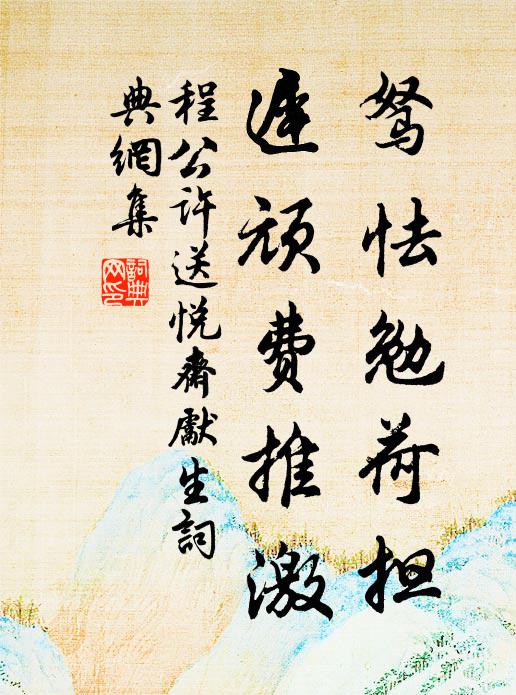 驽怯勉荷担
迟顽费推激
程公许送悦斋献生词
典网集
词典网印